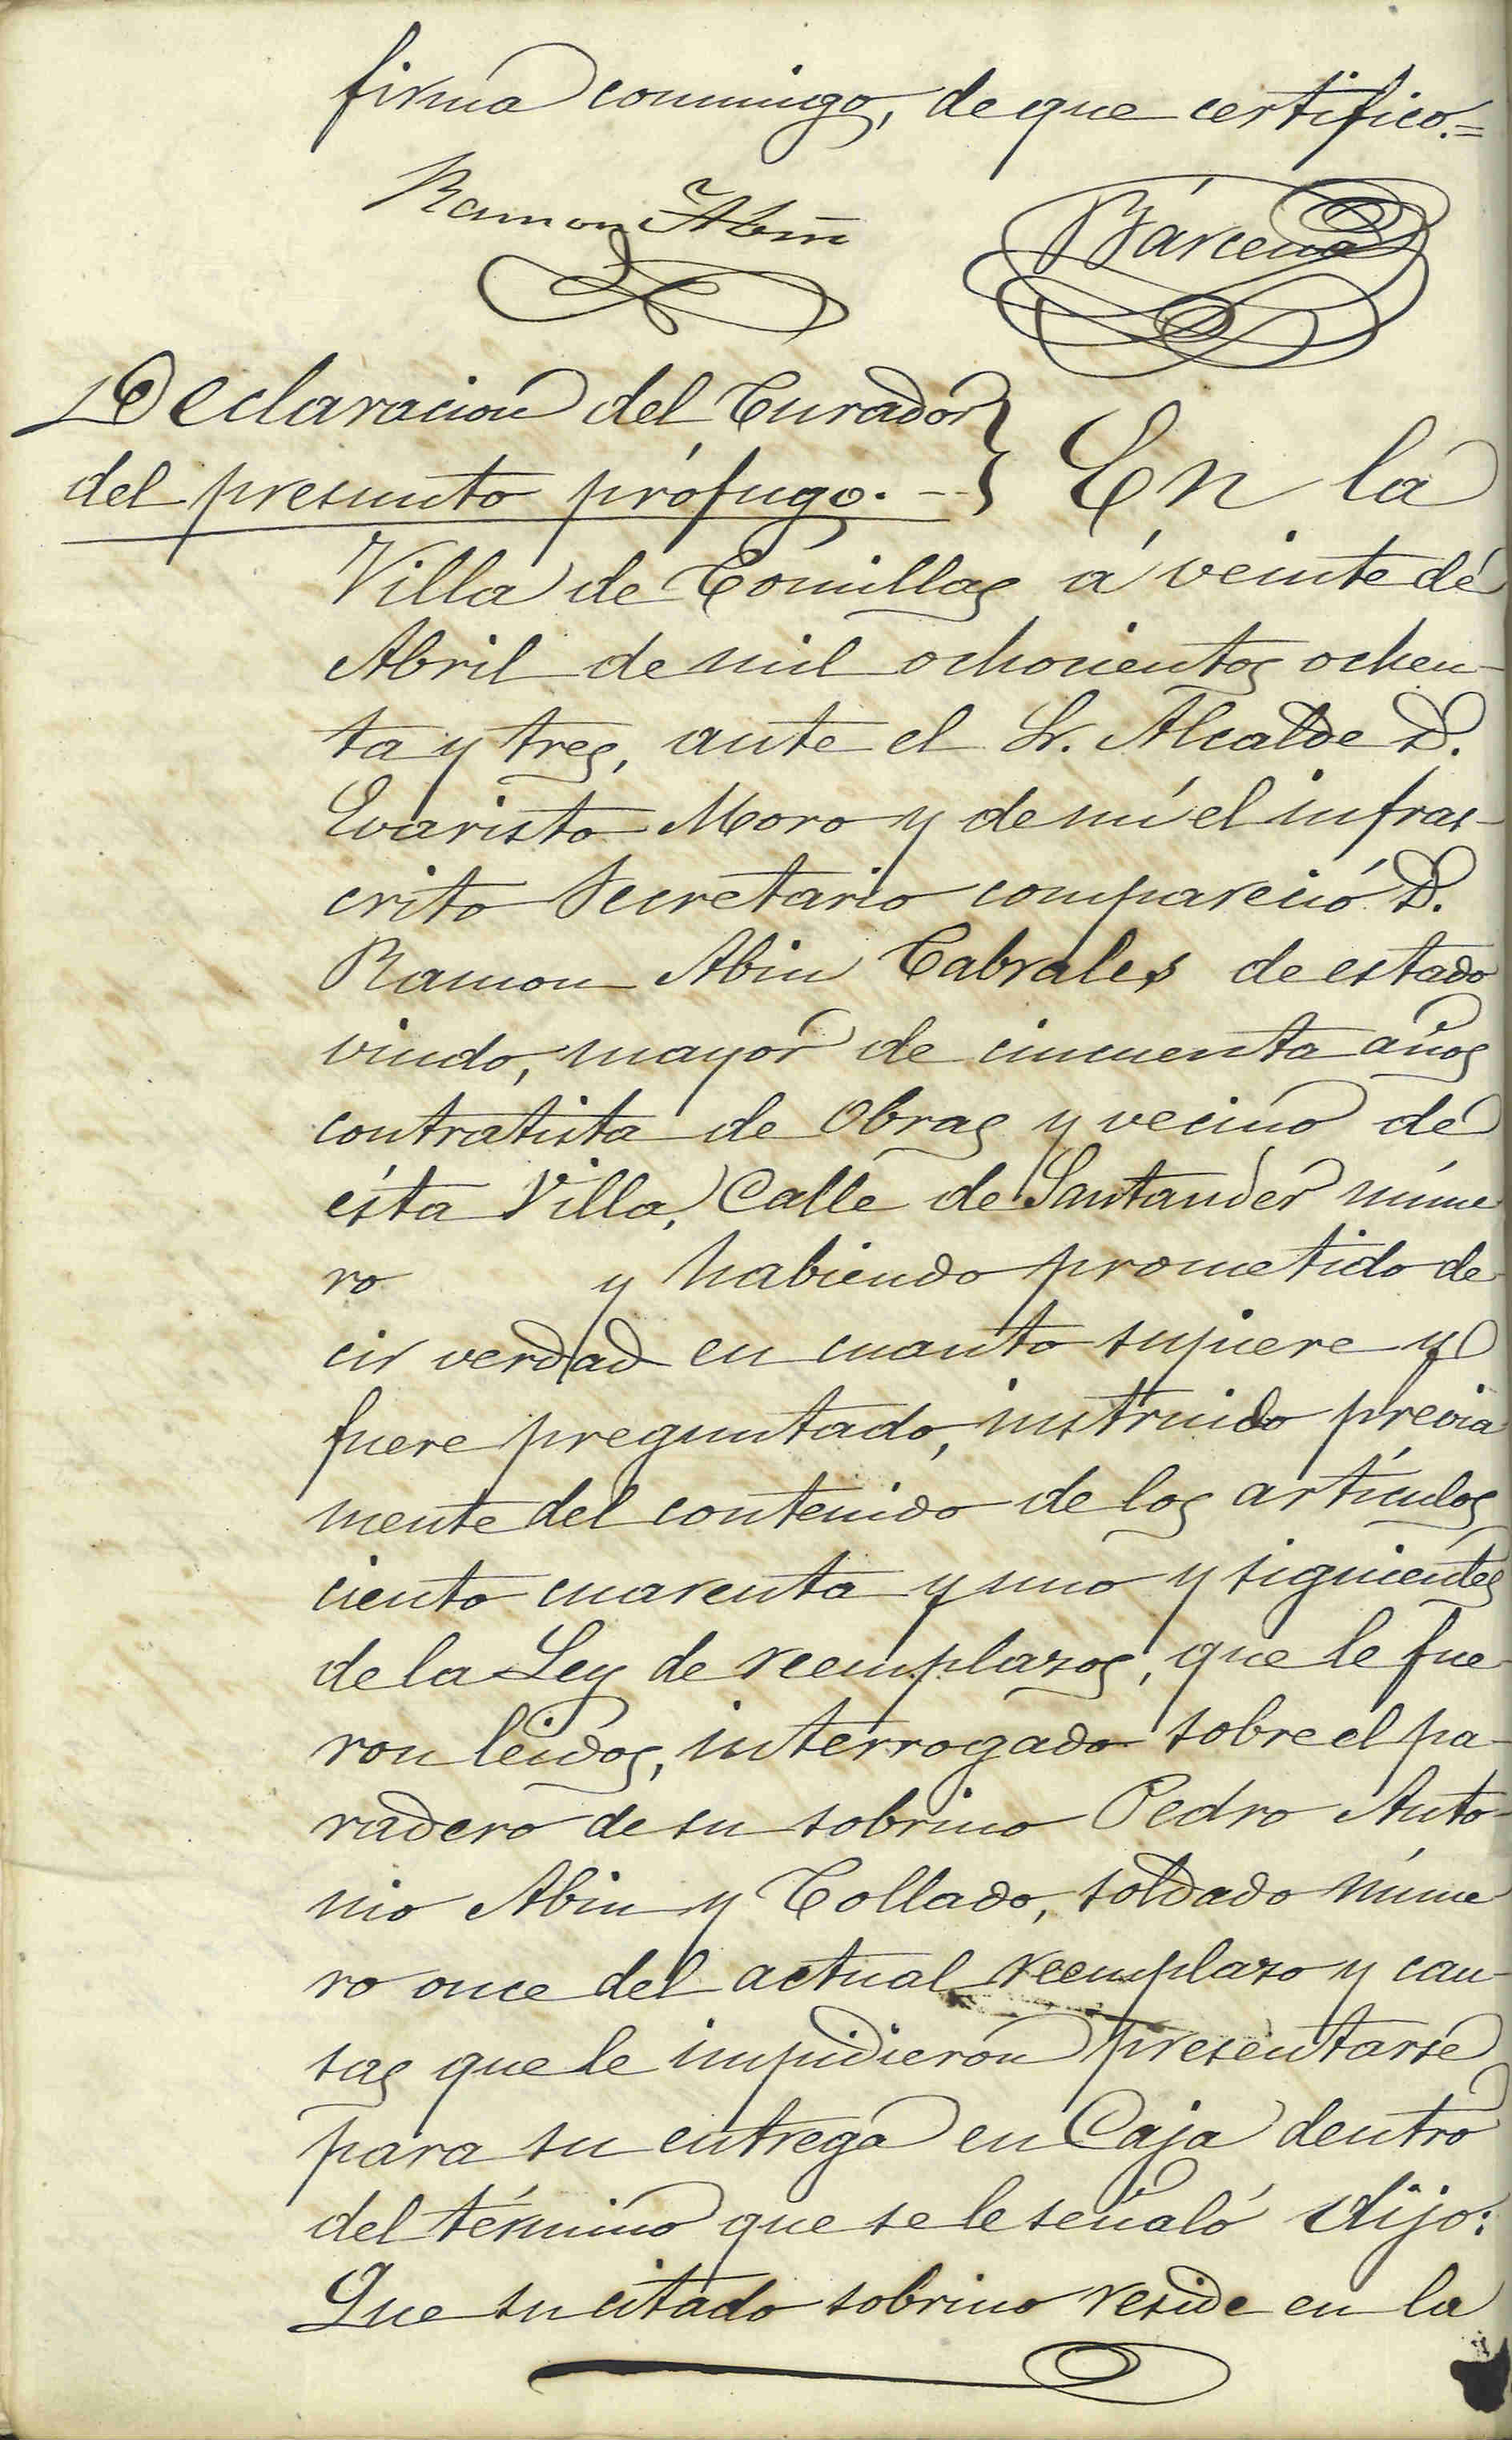 firma conmigo, de que certifico.=
Ramon Abin
Bárcena
Declaracion del Curador
del presunto prófugo. -- } En la
Villa de Comillas á veinte de
Abril de mil ochocientos ochen-
ta y tres, ante el Sr. Alcalde D.
Evaristo Moro y de mí el infras-
crito Secretario compareció D.
Ramon Abin Cabrales de estado
viudo, mayor de cincuenta años
contratista de Obras y vecino de
ésta Villa, Calle de Santander núme
ro y habiendo prometido de-
cir verdad en cuanto supiere y
fuere preguntado, instruido previa
mente del contenido de los artículos
ciento cuarenta y uno y siguientes
de la Ley de reemplazos, que le fue-
ron leidos, interrogado sobre el pa-
radero de su sobrino Pedro Anto-
nio Abin y Collado, soldado núme
ro once del actual reemplazo y cau-
sas que le impidieron presentarse
para su entrega en Caja dentro
del término que se le señaló dijo:
Que su citado sobrino reside en la